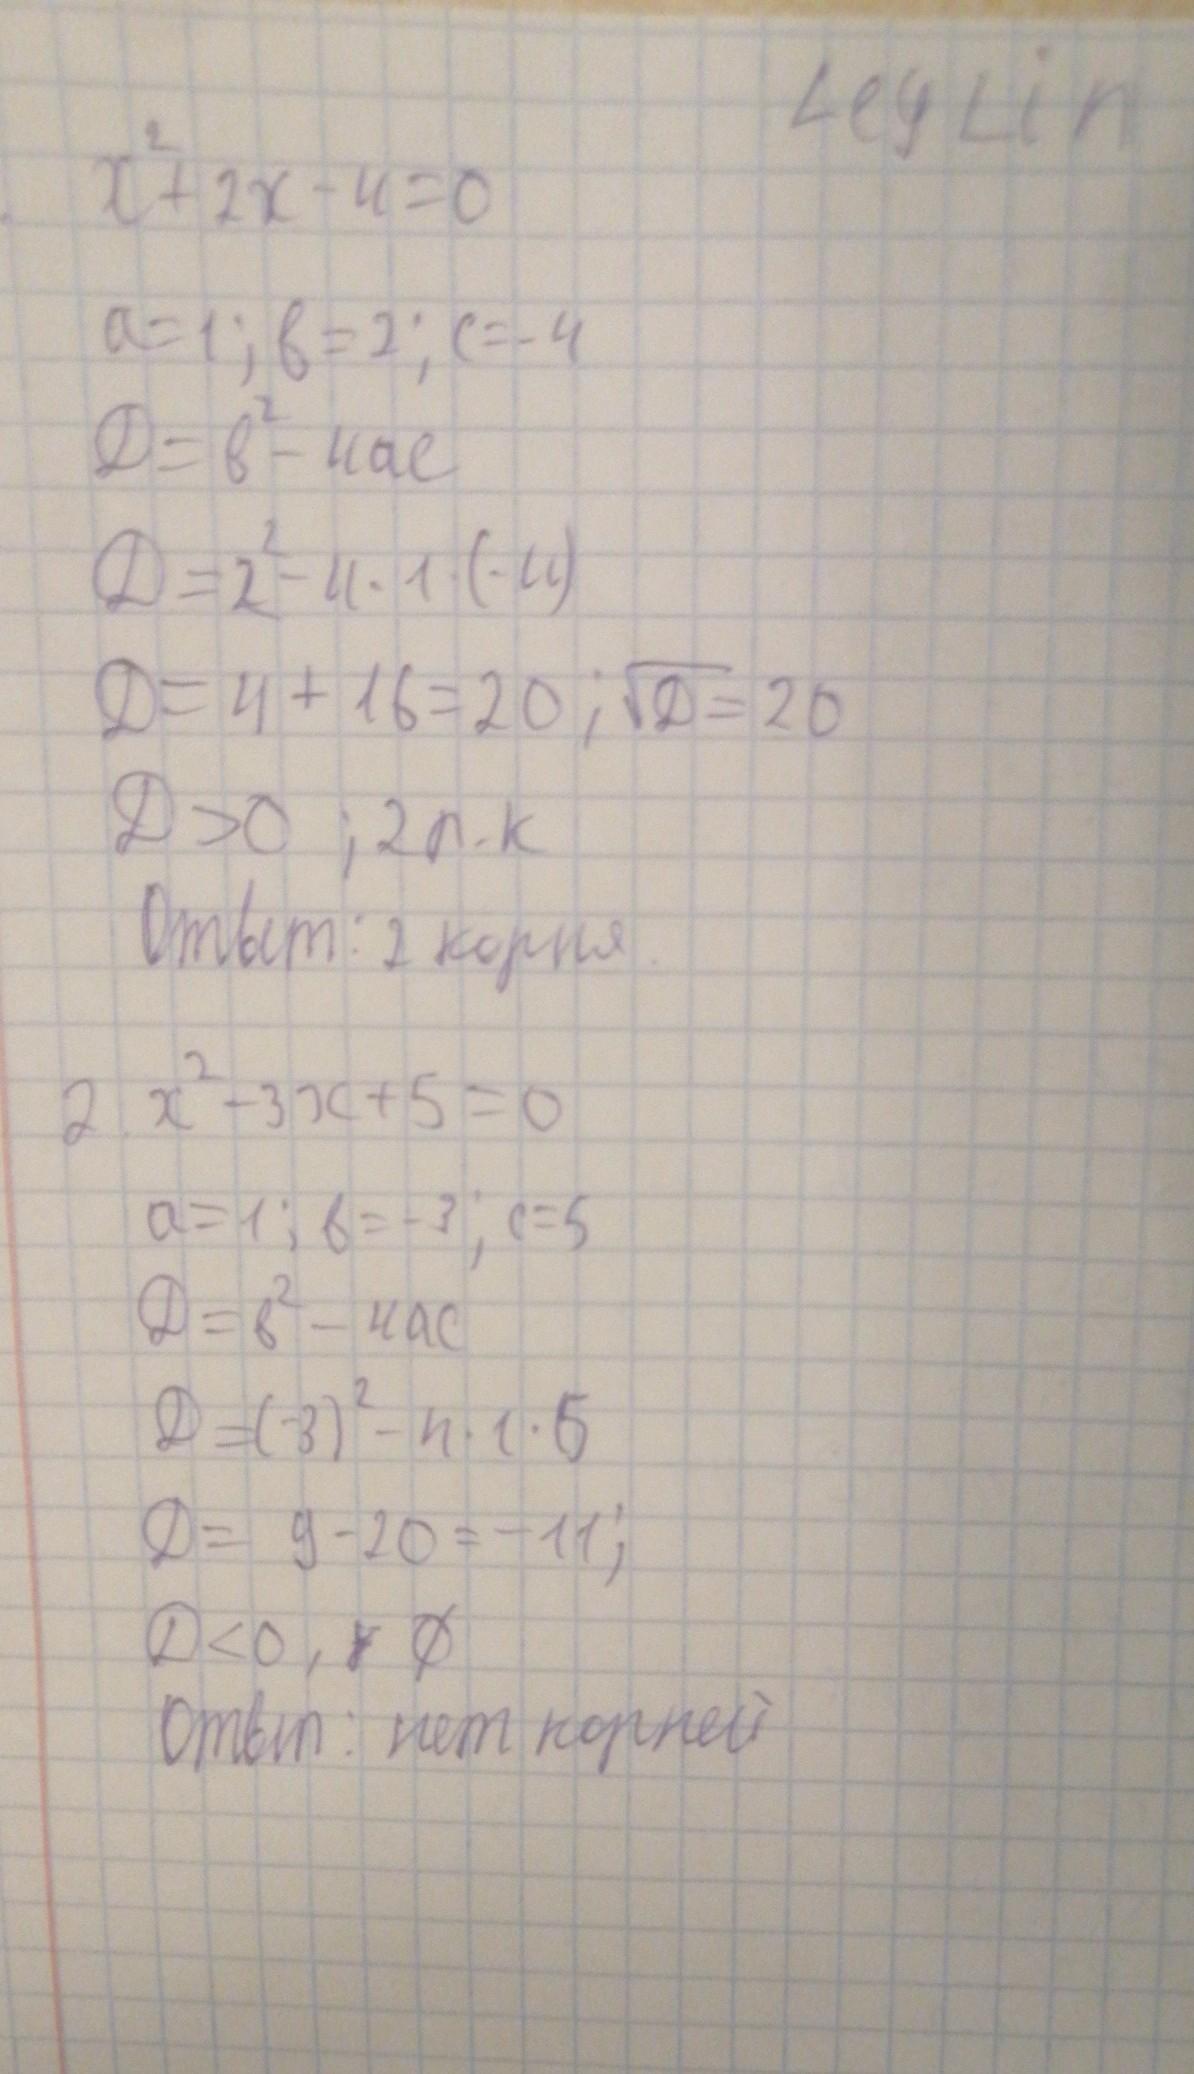 LeyLin
x²+2x-4=0
a=1; в=2; c=-4
D=в²-4ac
D=2²-4·1·(-4)
D=4+16=20; √D=20
D>0 ; 2 п.к
Ответ: 2 корня.
2. x²-3x+5=0
a=1; в=-3; c=5
D=в²-4ac
D=(-3)²-4·1·5
D= 9-20=-11;
D<0, ∅
Ответ: нет корней